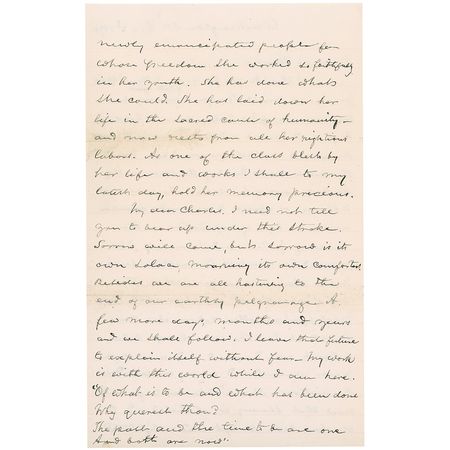 newly emancipated people for
whose freedom she worked so faithfully
in her youth. She has done what
she could. She has laid down her
life in the sacred cause of humanity—
and now rests from all her righteous
labors. As one of the class blest by
her life and works I shall to my
latest day, hold her memory precious.
My dear Charles. I need not tell
you to bear up under this stroke.
Sorrow will come, but sorrow is its
own solace, mourning its own comforter.
Besides we are all hastening to the
end of our earthly pilgrimage. A
few more days, months and years
and we shall follow. I leave the future
to explain itself without fear— My work
is with this world while I am here.
"Of what is to be and what has been done
Why querest thou?
The past and the time to be are one
And both are now".